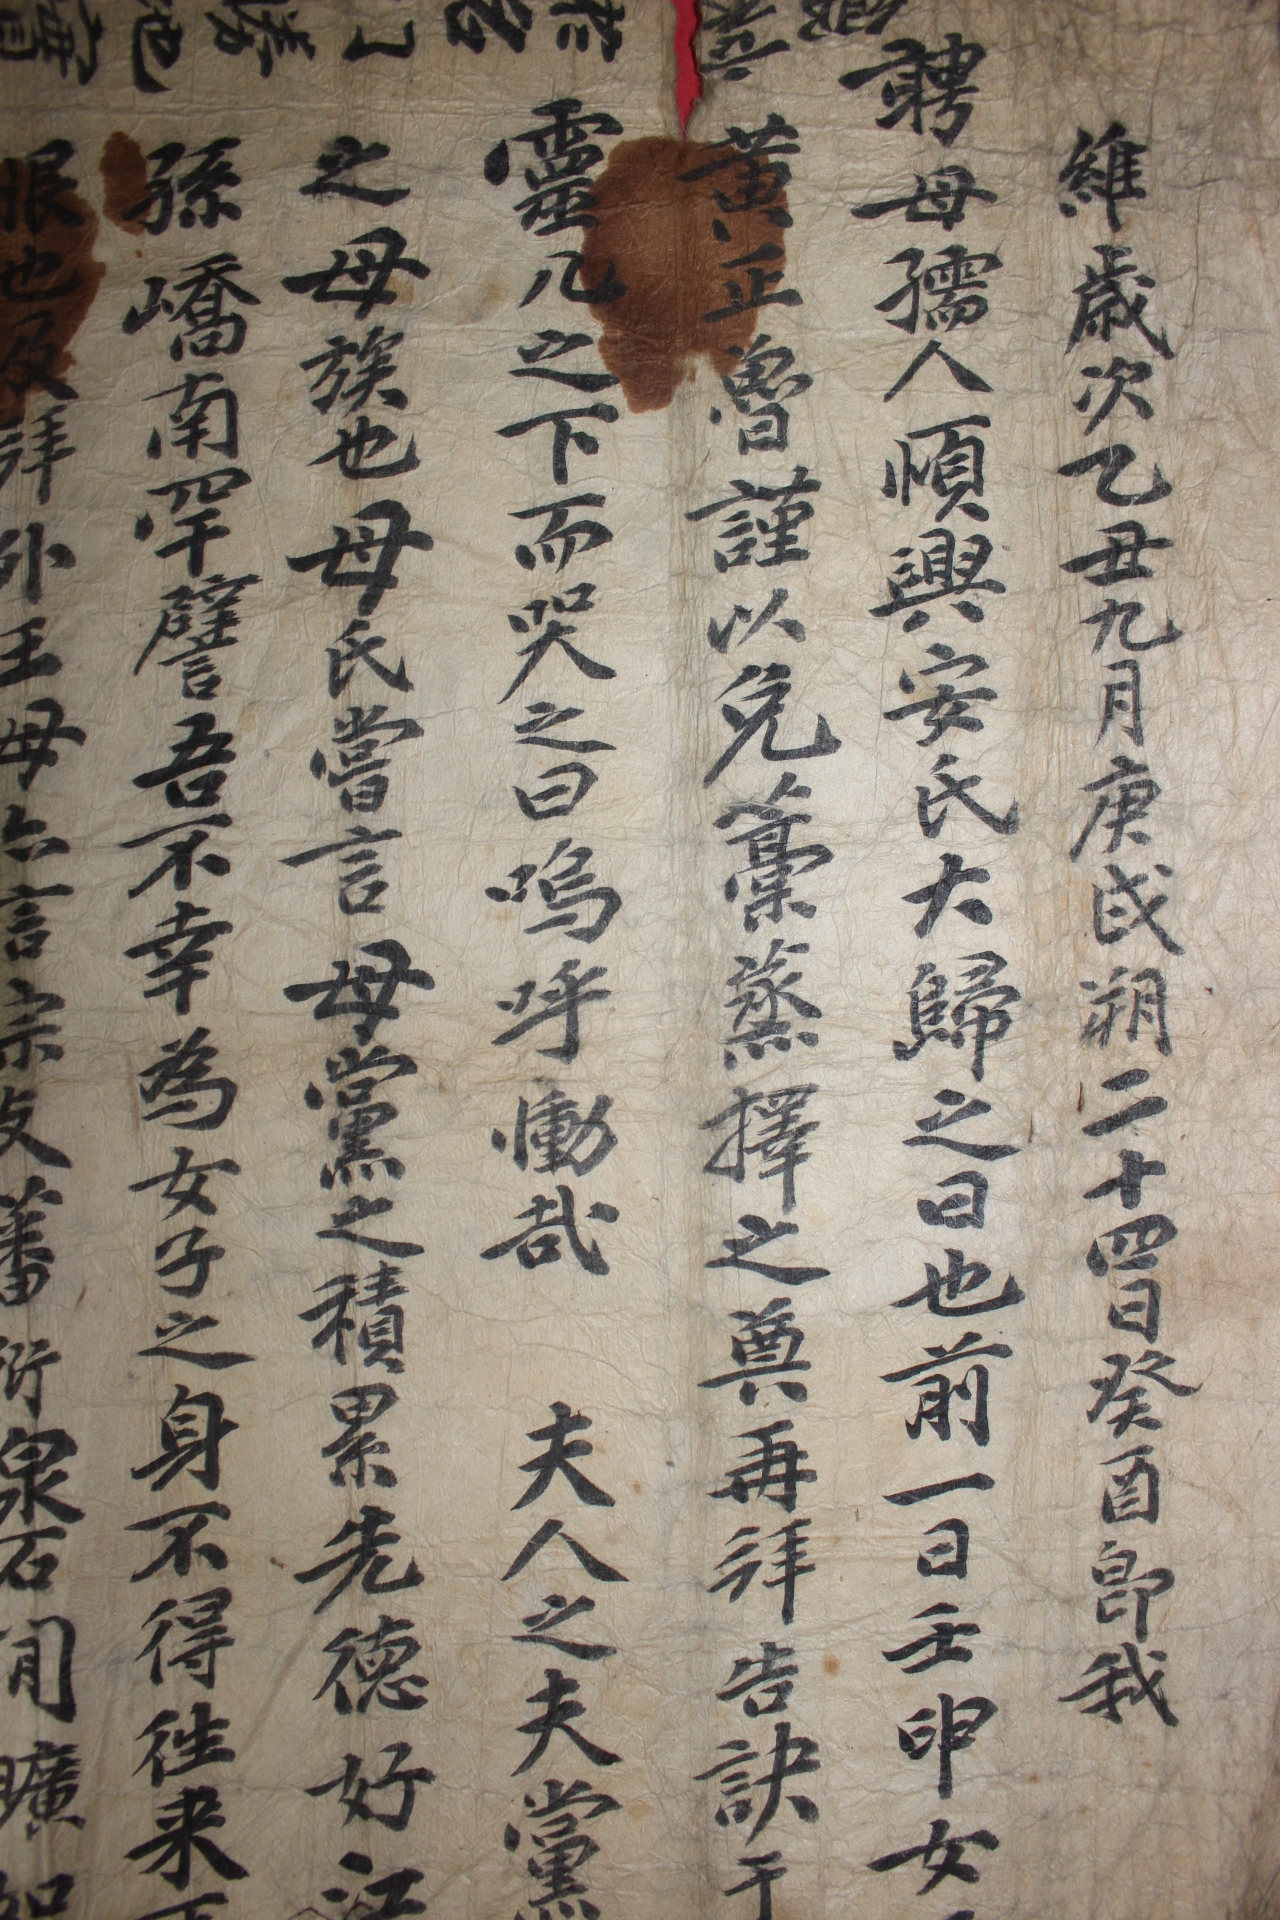 維歲次乙丑九月庚戌朔二十四日癸酉卽我
聘母孺人順興安氏大歸之日也前一日壬申女
黃正魯謹以兔藁蒸擇之奠再拜告訣于
靈几之下而哭之曰嗚呼慟哉 夫人之夫黨
之母族也母氏嘗言母黨之積累先德好江
孫嶠南罕譬吾不幸為女子之身不得徃来
眼也及拜外王母亦言宗支蕃衍泉石閒曠如